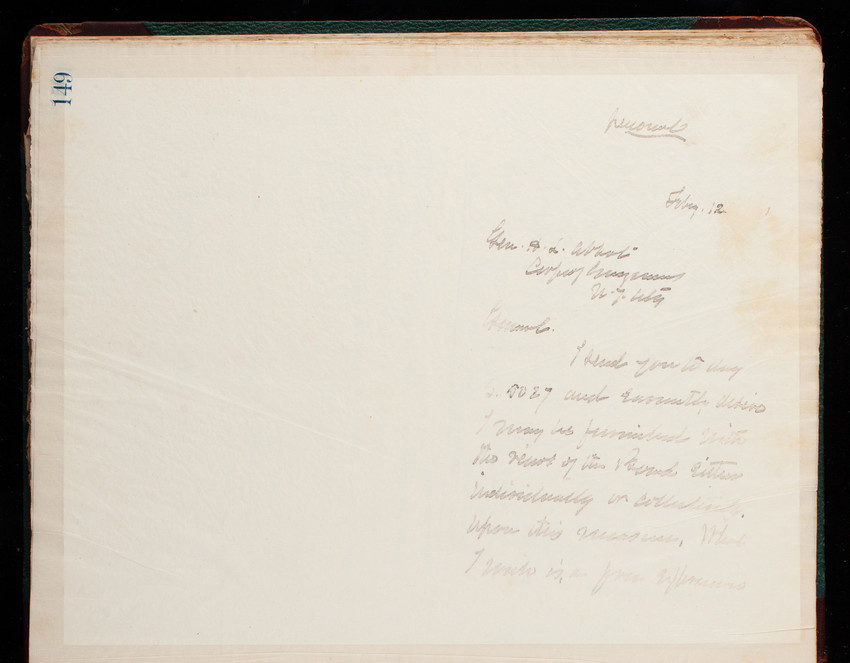 149
Personal
Feby. 12
Gen. H. L. Abbot
Corps of Engineers
N. Y. City
General.
I send you to day
S. 5027 and earnestly desire
I may be furnished with
the views of the Board either
individually or collectively
upon this measure. What
I want is a free expression